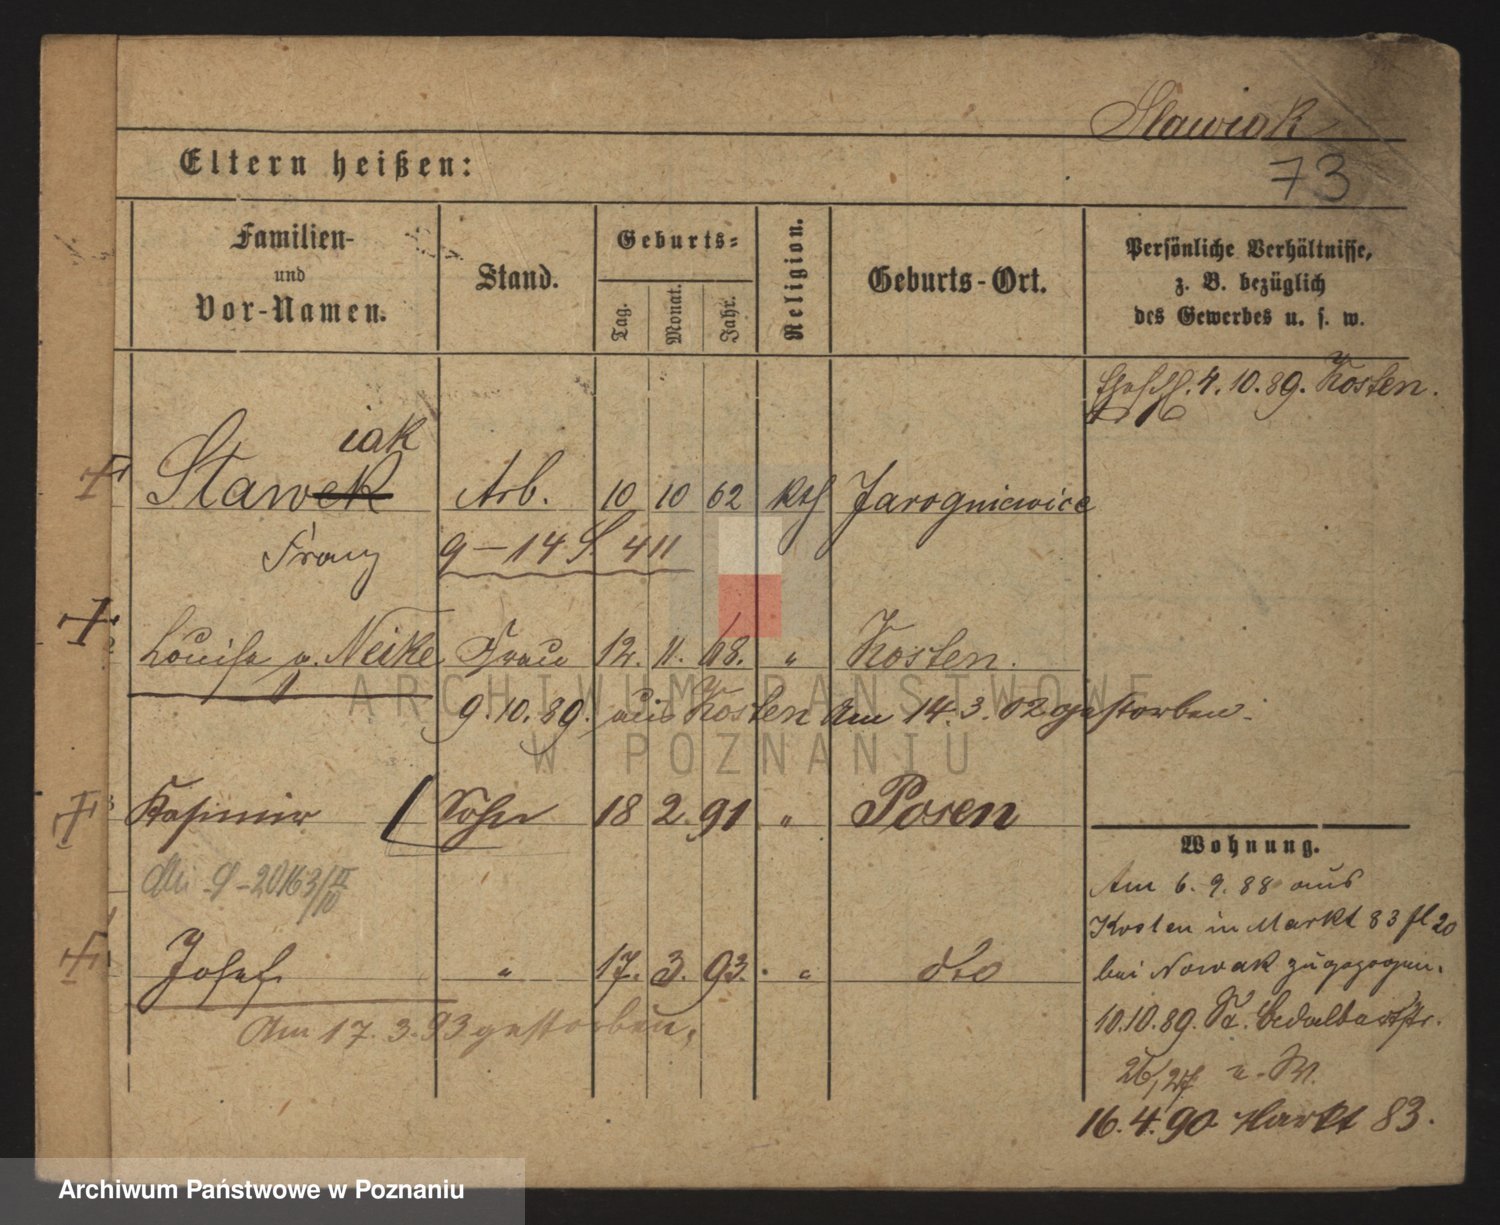 Stawiak
73
Eltern heißen:
Familien-
und
Vor-Namen.
Stand.
Geburts-
Tag.
Monat.
Jahr.
Religion.
Geburts-Ort.
Persönliche Verhältnisse,
z. B. bezüglich
des Gewerbes u. s. w.
4.10.89. Kosten.
iak
Stawek Arb. 10 10 62 Kth Jarogniewice
Franz 9-14 S. 411
Louise g. Neike Frau 12. 11. 68. " Kosten.
9.10.89. aus Kosten Am 14.3.02 gestorben.
Kasimir Sohn 18 2. 91 " Posen
Josef " 17. 3. 93. " dto
Am 17.3.93 gestorben.
Wohnung.
Am 6.9.88 aus
Kosten in Markt 83 fl 20
bei Nowak zugezogen.
10.10.89.
26/27
16.4.90 Markt 83.
ARCHIWUM PAŃSTWOWE
W POZNANIU
Archiwum Państwowe w Poznaniu